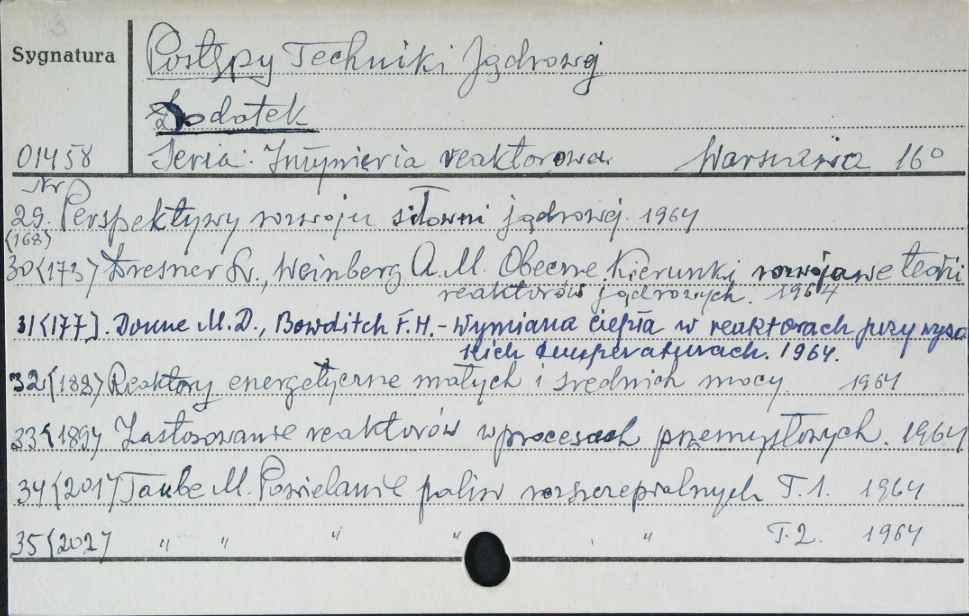 Sygnatura
Postępy Techniki Jądrowej
Dodatek
01458 Seria: Inżynieria reaktorowa. Warszawa 16°
Nr
29. Perspektywy rozwoju siłowni jądrowej. 1964
(168)
30(173) Dresner L., Weinberg A.M. Obecne kierunki rozwojowe teorii
reaktorów jądrowych. 1964
31(177). Donne M.D., Bowditch F.H. - Wymiana ciepła w reaktorach przy wyso
kich temperaturach. 1964.
32(183) Reaktory energetyczne małych i średnich mocy 1964
33(189) Zastosowanie reaktorów w procesach przemysłowych. 1964
34(201) Taube M. Powielanie paliw rozszczepialnych T.1. 1964
35(202) " " " " " T.2. 1964